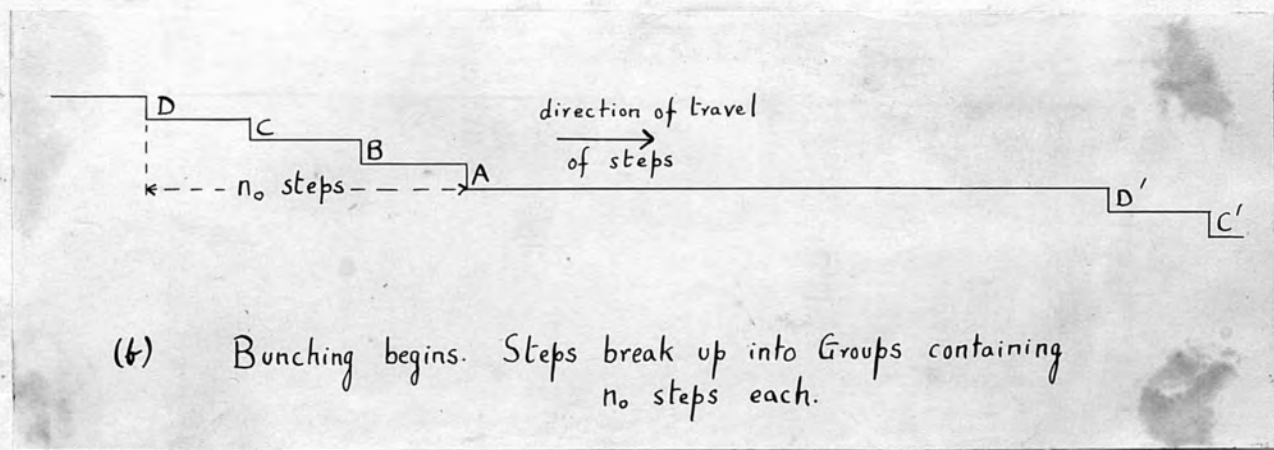 D
C
B
A
direction of travel
of steps
n₀ steps
D'
C'
(b) Bunching begins. Steps break up into Groups containing
n₀ steps each.